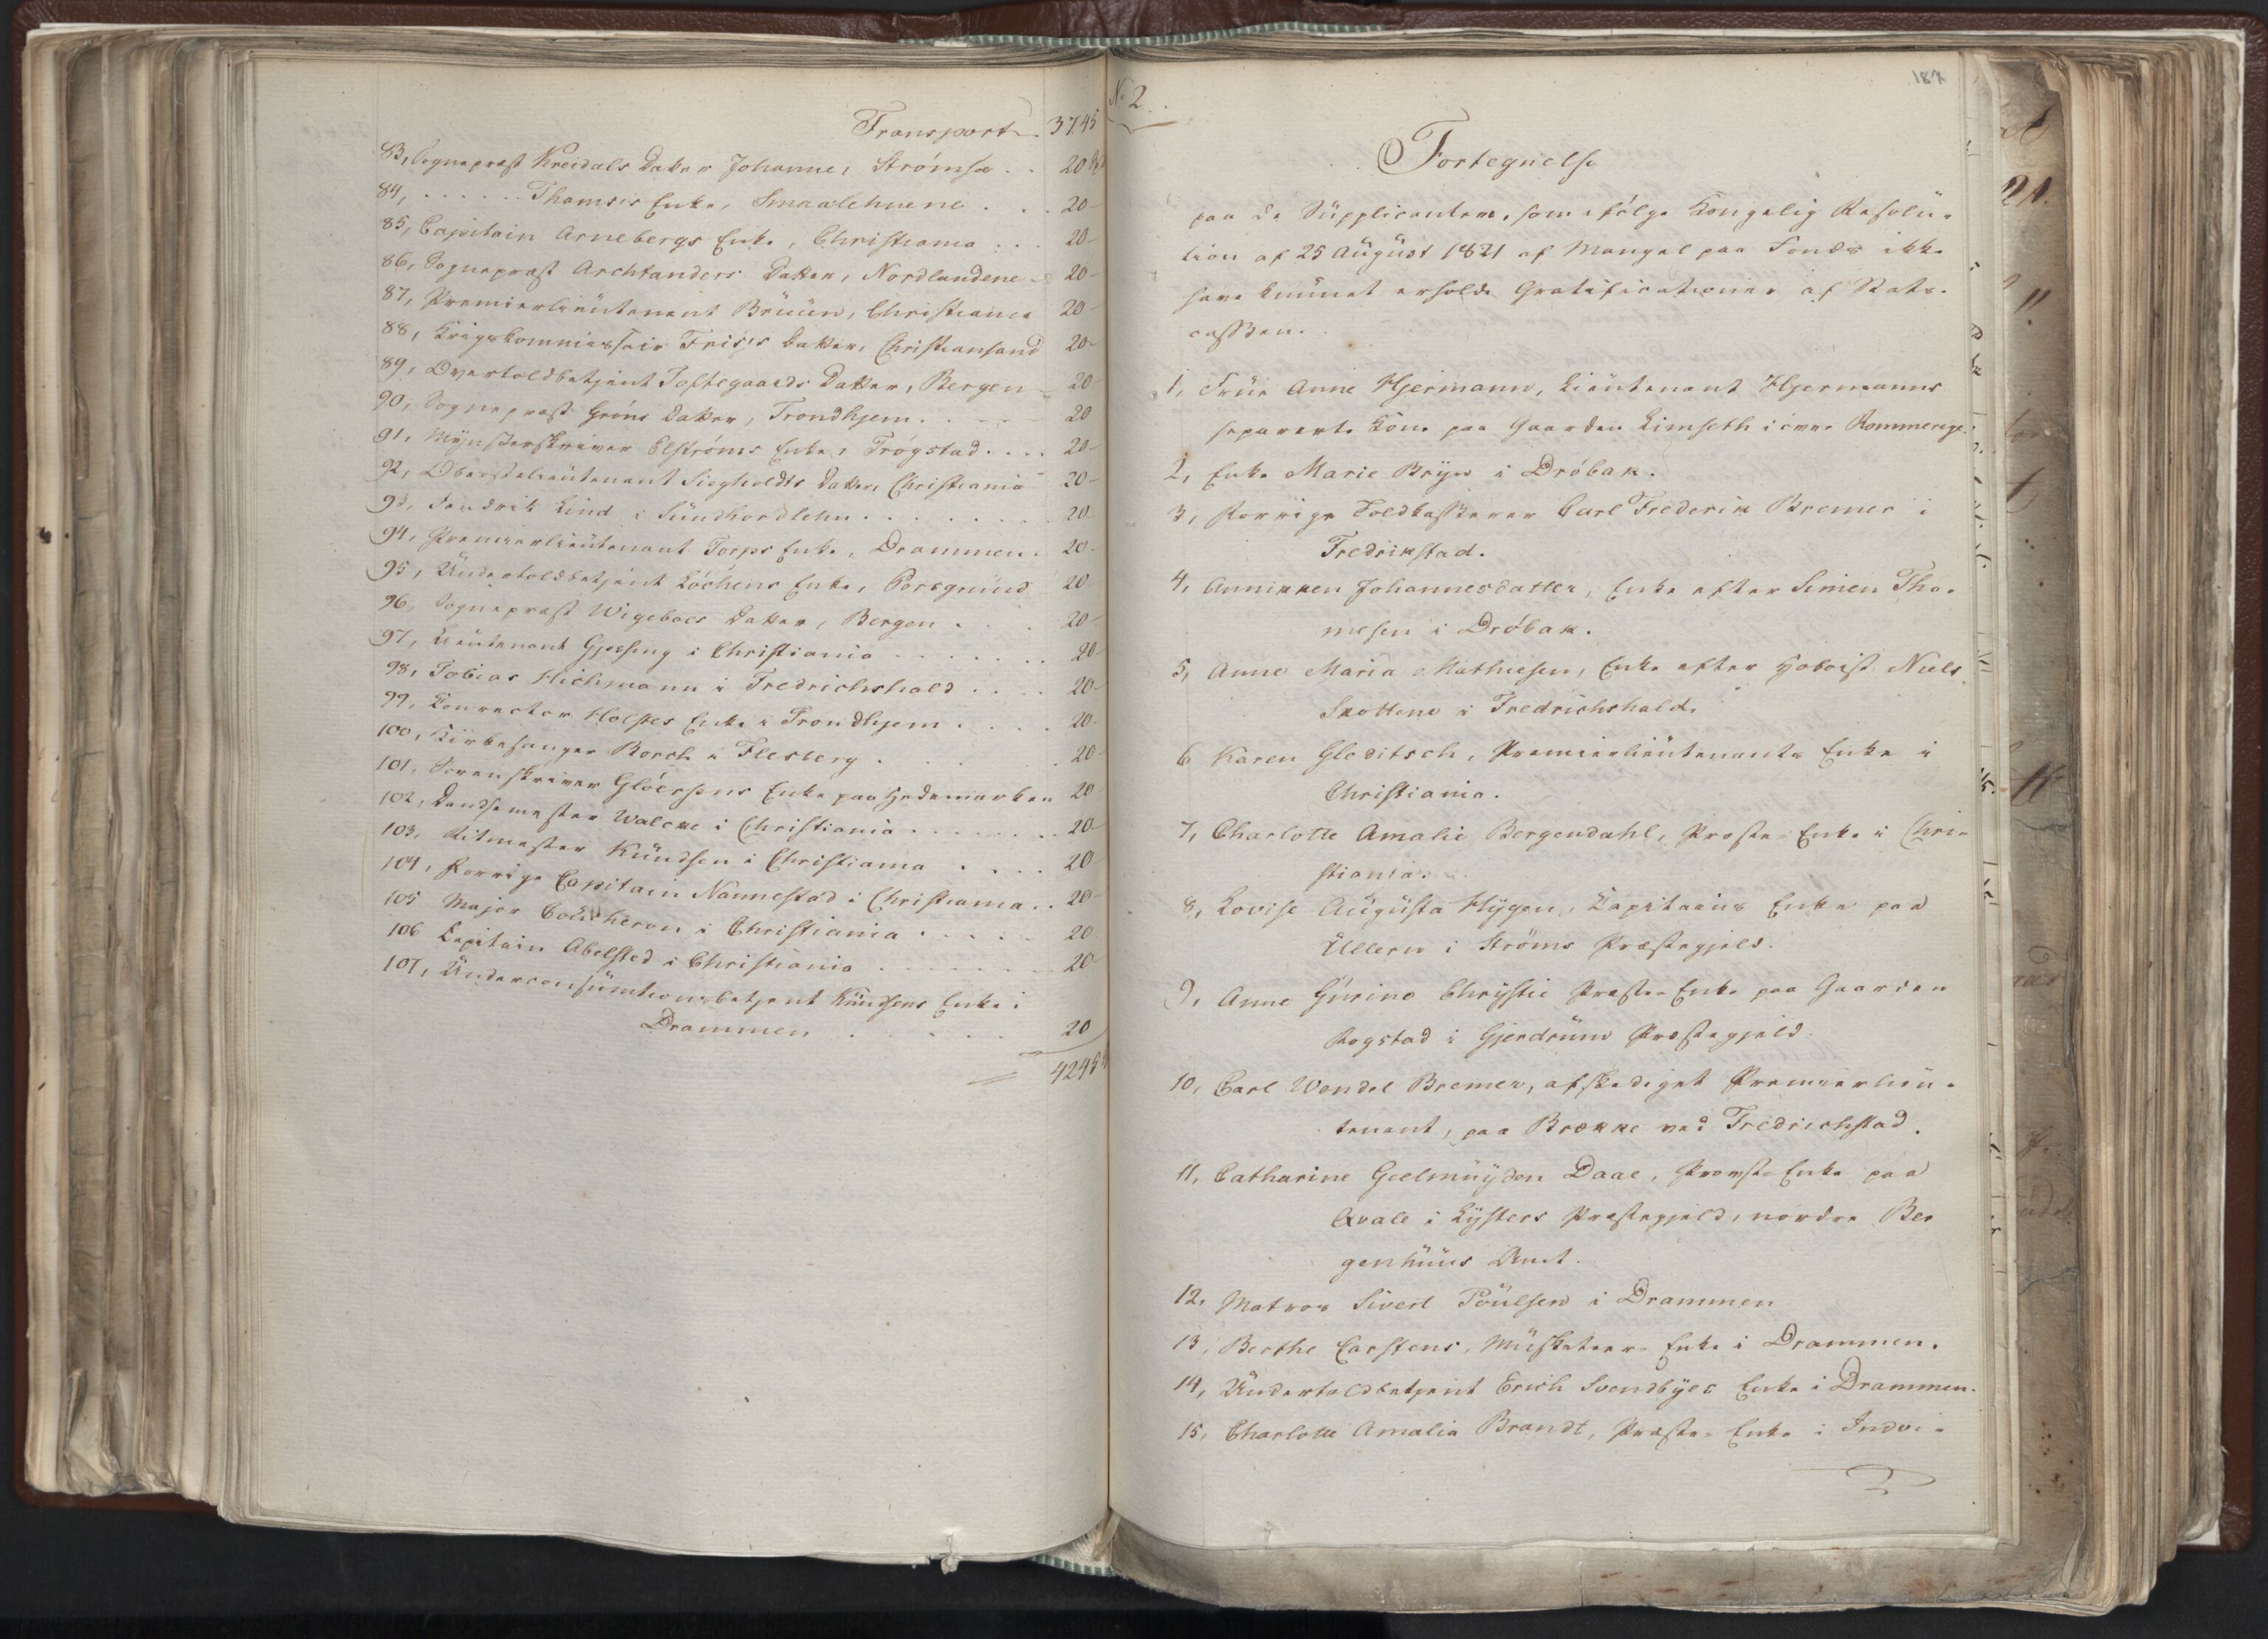 Transport . 3745
83, Sognepræst Kreidals Datter Johanne, Strømsøe . . 20
84, . . . . . . Thamsis Enke, Smaalehnene . . . 20-
85, Capitain Arnebergs Enke, Christiania . . . 20-
86, Sognepræst Archtanders Datter, Nordlandene - 20-
87, Premierlieutenant Bruun, Christiania 20-
88, Krigskommissair Friis's Datter, Christiansand 20-
89, Overtoldbetjent Toftegaards Datter, Bergen - 20-
90, Sognepræst Grøns Datter, Trondhjem . . . 20
91, Mynsterskriver Elstrøms Enke, Trøgstad . . . . 20-
92, Oberstelieutenant Siegholdts Datter, Christiania 20-
93, Fendrik Lind i Sundhordlehn . . . . . . . 20-
94, Premierlieutenant Torps Enke, Drammen . 20-
95, Undertoldbetjent Kochens Enke, Porsgrund 20
96, Sognepræst Wigeboes Datter, Bergen . . . . 20-
97, Lieutenant Gjessing i Christiania . . . . . . . 20
98, Tobias Hichmann i Fredrichshald . . . . 20-
99, Conrector Holstes Enke i Trondhjem . . . . 20-
100, Kirkesanger Borch i Flesberg . . . . . . 20-
101, Sorenskriver Gløersens Enke paa Hedemarken 20
102, Dandsemester Walcke i Christiania . . . . . . . 20-
103, Ritmester Knudsen i Christiania . . . . 20
104, Forrige Capitain Nannestad i Christiania . . 20-
105 Major Coucheron i Christiania . . . . . 20
106 Capitain Abelsted i Christiania . . . . . . 20-
107, Underconsumtionsbetjent Knudsens Enke i
Drammen . . . . . 20
4245
No 2.
187
Fortegnelse
paa de Supplicantere, som ifølge Kongelig Resolu-
tion af 25 August 1821 af Mangel paa Fonds ikke
have kunnet erholde Gratificationer af Stats-
cassen.
1, Frue Anne Hjermann, Lieutenant Hjermanns
separerte Kone paa Gaarden Limseth i øvre Rommerige.
2, Enke Marie Bryn i Drøbak.
3, Forrige Toldkasserer Carl Frederik Bremer i
Fredrikstad.
4, Annikken Johannesdatter, Enke efter Simen Tho-
mesen i Drøbak.
5, Anne Maria Mathiesen, Enke efter Hoboist Niels
Skottene i Fredrichshald.
6 Karen Gleditsch, Premierlieutenants Enke i
Christiania.
7, Charlotte Amalie Bergendahl, Præste-Enke i Chri-
stiania.
8, Lovise Augusta Hygen, Capitains Enke paa
Ullern i Strøms Præstegjeld.
9, Anne Gurine Chrystie Præste-Enke paa Gaarden
Rogstad i Gjerdrum Præstegjeld.
10, Carl Wendel Bremer, afskediget Premierlieu-
tenant, paa Brække ved Fredrichstad.
11, Catharine Geelmuyden Daae, Provst-Enke paa
Qvale i Lysters Præstegjeld, nordre Ber
genhuus Amt.
12, Matros Sivert Poulsen i Drammen
13, Berthe Carstens, Musketeer-Enke i Drammen.
14, Undertoldbetjent Erich Svendbyes Enke i Drammen.
15, Charlotte Amalia Brandt, Præste-Enke i Indvi-